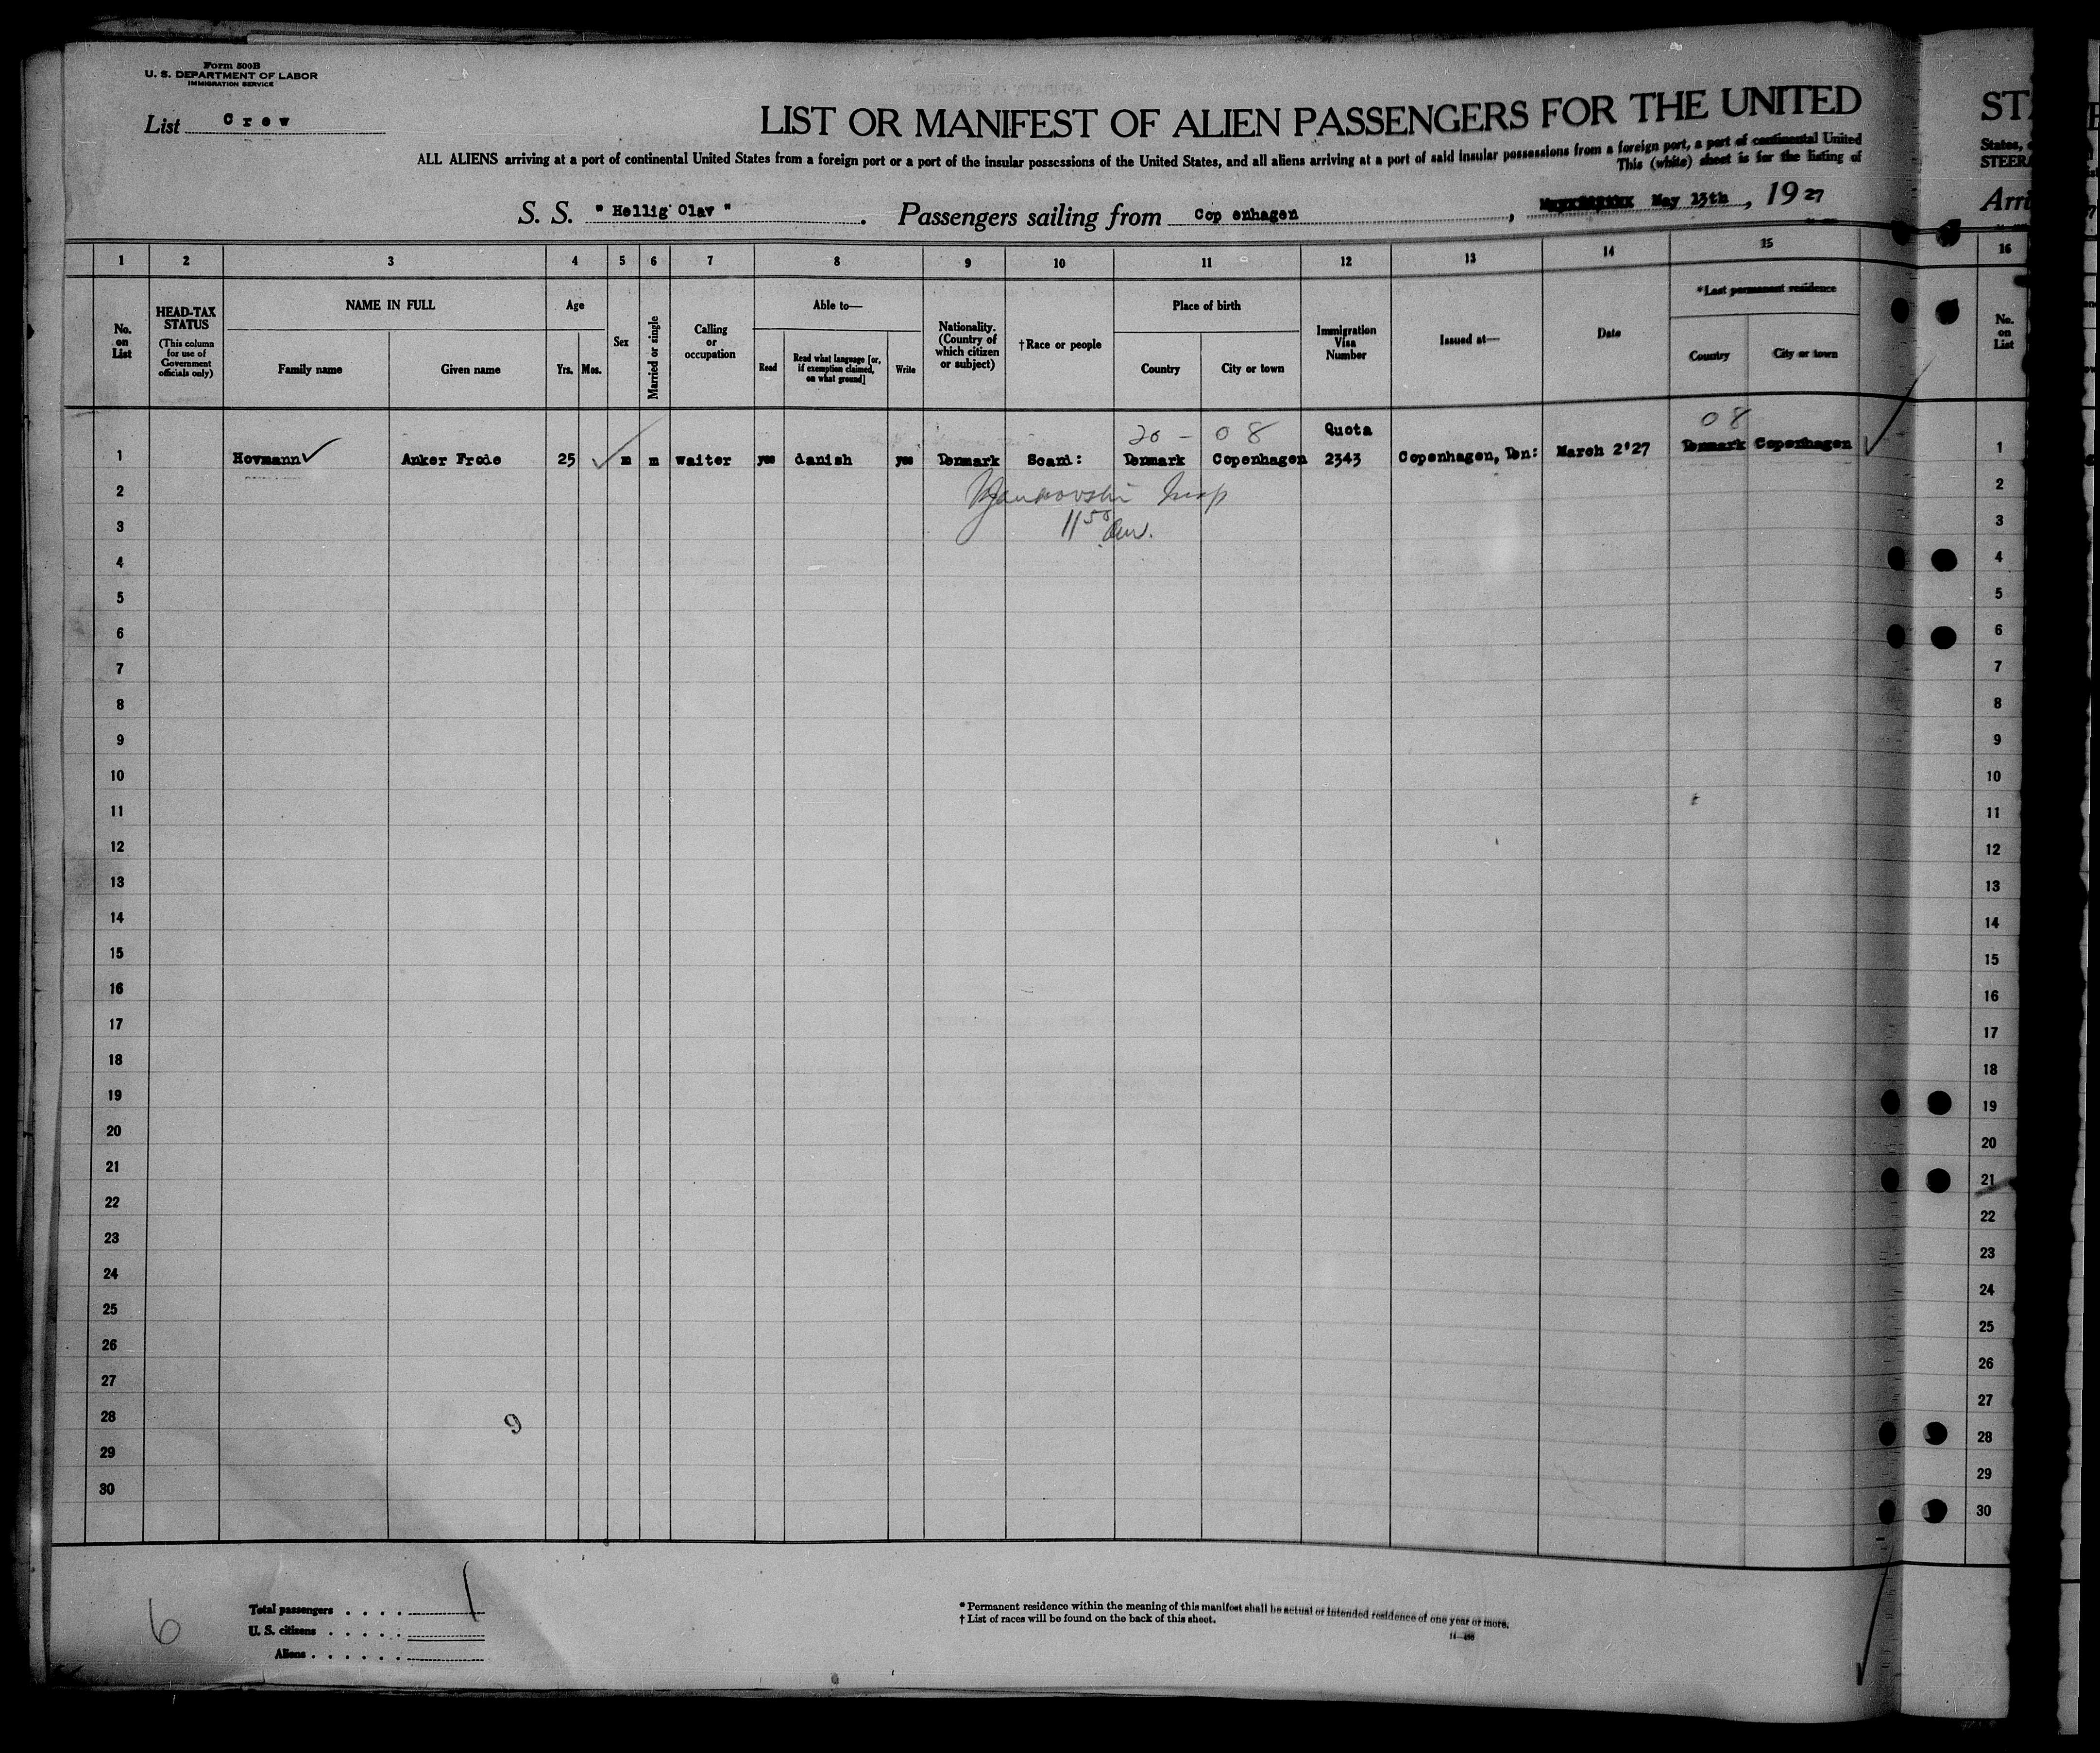 Form 500B
U. S. DEPARTMENT OF LABOR
IMMIGRATION SERVICE
List Crew
LIST OR MANIFEST OF ALIEN PASSENGERS FOR THE UNITED
ALL ALIENS arriving at a port of continental United States from a foreign port or a port of the insular possessions of the United States, and all aliens arriving at a port of said insular possessions from a foreign port, a port of continental United
This (white) sheet is for the listing of
S. S. " Hellig Olav " . Passengers sailing from Cop enhagen , May 13th , 19 27
ST
States,
STEER
Arri
1 2 3 4 5 6 7 8 9 10 11 12 13 14 15 16
No. on List
HEAD-TAX STATUS
(This column for use of Government officials only)
NAME IN FULL
Family name Given name
Age
Yrs. Mos.
Sex
Married or single
Calling or occupation
Able to—
Read
Read what language [or, if exemption claimed, on what ground]
Write
Nationality. (Country of which citizen or subject)
†Race or people
Place of birth
Country City or town
Immigration Visa Number
Issued at—
Date
*Last permanent residence
Country City or town
No. on List
20 - 08 Quota 08
1 Hovmann Anker Frode 25 m m waiter yes danish yes Denmark Scand: Denmark Copenhagen 2343 Copenhagen, Den: March 2'27 Denmark Copenhagen 1
2 Insp 2
3 11 50 am. 3
4 4
5 5
6 6
7 7
8 8
9 9
10 10
11 11
12 12
13 13
14 14
15 15
16 16
17 17
18 18
19 19
20 20
21 21
22 22
23 23
24 24
25 25
26 26
27 27
28 9 28
29 29
30 30
6
Total passengers . . . . 1
U. S. citizens . . . . .
Aliens . . . . . .
* Permanent residence within the meaning of this manifest shall be actual or intended residence of one year or more.
† List of races will be found on the back of this sheet.